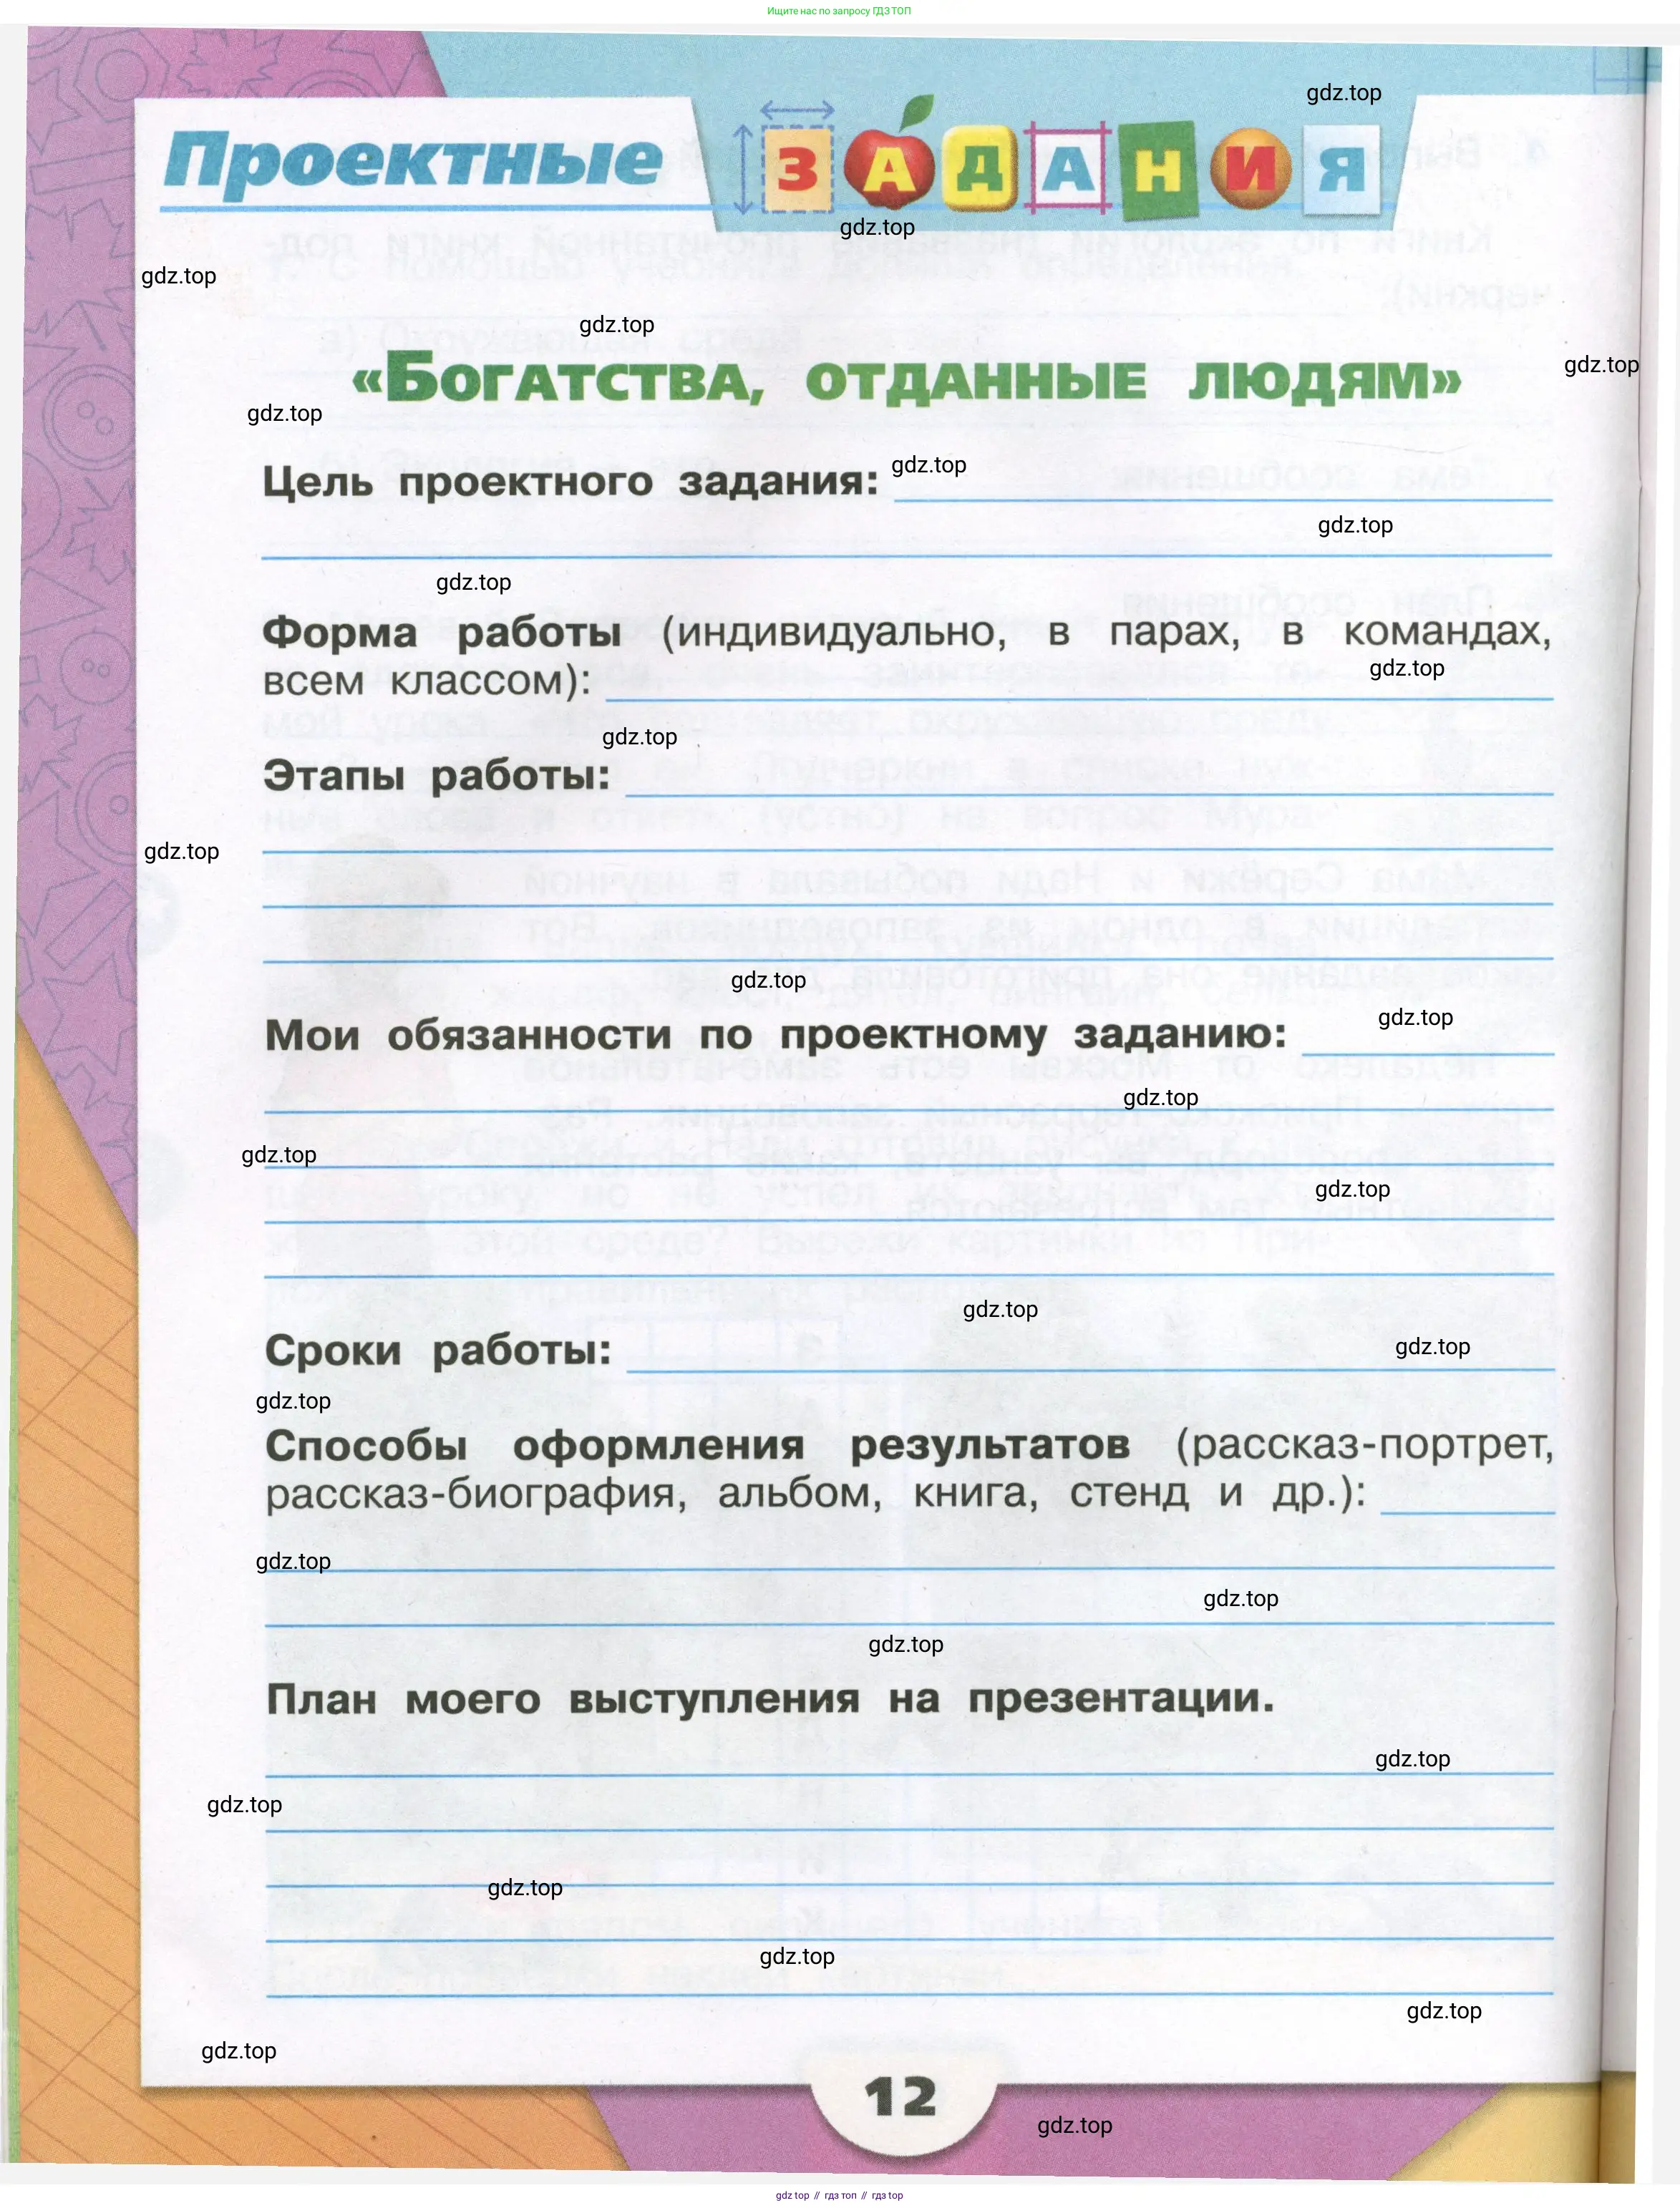 Ищите нас по запросу ГДЗ ТОП
gdz.top
Проектные ЗАДАНИЯ
gdz.top
gdz.top
gdz.top
gdz.top
«Богатства, отданные людям»
gdz.top
Цель проектного задания: gdz.top
gdz.top
gdz.top
Форма работы (индивидуально, в парах, в командах,
всем классом): gdz.top
gdz.top
Этапы работы:
gdz.top
gdz.top
Мои обязанности по проектному заданию: gdz.top
gdz.top
gdz.top
gdz.top
gdz.top
Сроки работы: gdz.top
gdz.top
Способы оформления результатов (рассказ-портрет,
рассказ-биография, альбом, книга, стенд и др.):
gdz.top
gdz.top
gdz.top
План моего выступления на презентации.
gdz.top
gdz.top
gdz.top
gdz.top
gdz.top
gdz.top
12
gdz.top
gdz top // гдз топ // гдз top